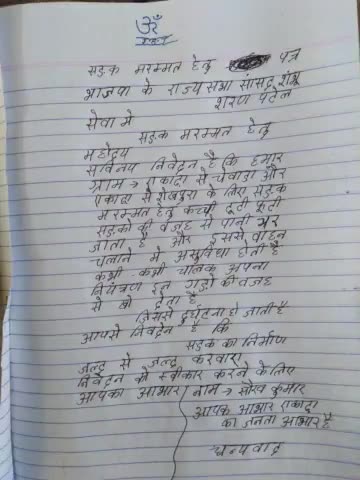 ॐ
सड़क मरम्मत हेतु पत्र
भाजपा के राज्य सभा सांसद शंभू
शरण पटेल
सेवा मे
सड़क मरम्मत हेतु
महोदय
सविनय निवेदन है कि हमार
ग्राम → एकादा से चेवाड़ा और
एकादा से शेखपुरा के लिए सड़क
मरम्मत हेतु कच्ची टूटी फूटी
सड़को की वजह से पानी भर
जाता है और इससे वाहन
चलाने मे असुविधा होती है
कभी-कभी चालक अपना
नियंत्रण इन गड्ढो की वजह
से खो देता है
जिससे दुर्घटना हो जाती है
आपसे निवेदन है कि
सड़क का निर्माण
जल्द से जल्द करवाए
निवेदन को स्वीकार करने के लिए
आपका आभारी नाम → सौरव कुमार
आपके आभार एकादा
का जनता आभार है
धन्यवाद